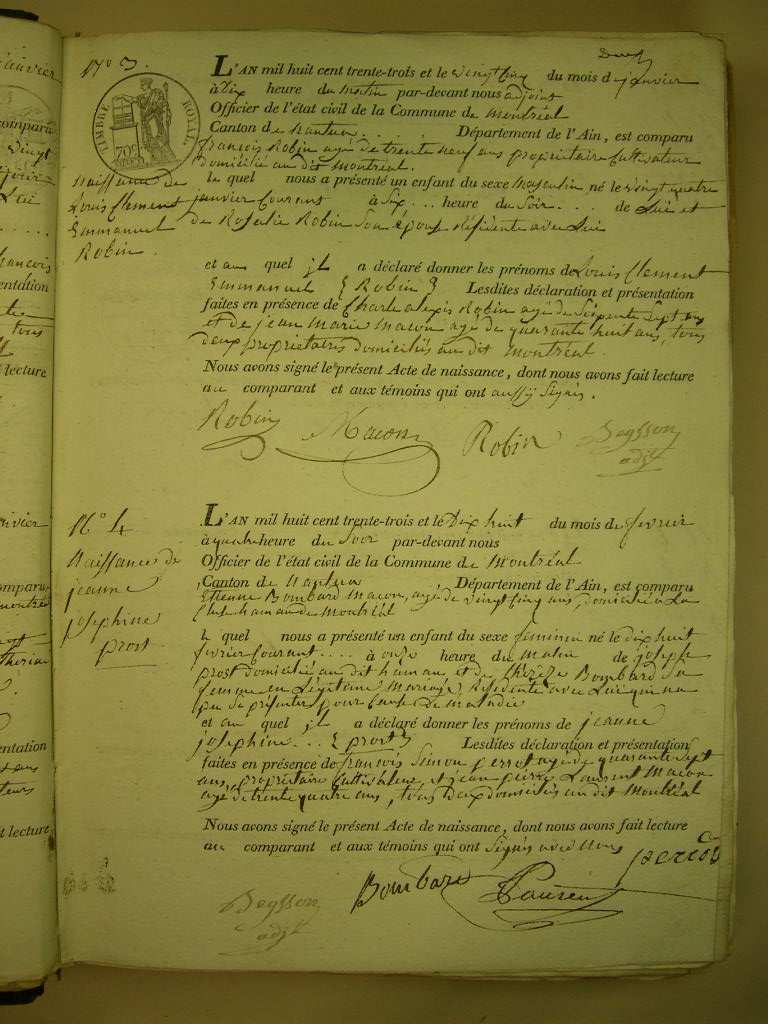 N.o 3.
TIMBRE ROYAL
70 C
Naissance de
Louis Clement
Emmanuel
Robin
L'AN mil huit cent trente-trois et le vingt cinq du mois de janvier
à Dix heure du Matin par-devant nous adjoint
Officier de l'état civil de la Commune de Montréal
Canton de Nantua . . . . Département de l'Ain, est comparu
francois Robin agé de trente neuf ans proprietaire Cultivateur
domicilié au dit Montréal.
le quel nous a présenté un enfant du sexe Masculin né le vingt quatre
janvier Courant à Six . . . heure du Soir . . . . de Lui et
de Rosalie Robin Son épouse Résidente avec Lui
et au quel il a déclaré donner les prénoms de Louis Clement
Emmanuel { Robin } Lesdites déclaration et présentation
faites en présence de Charle alexis Robin agé de Soixente Sept ans
et de jean Marie Macon agé de quarante huit ans, tous
deux proprietaires domiciliés au dit Montréal.
Nous avons signé le présent Acte de naissance, dont nous avons fait lecture
au comparant et aux témoins qui ont aussij Signés.
Robin Macon Robin Beysson
adjt
N.o 4
Naissance de
jeanne
josephine
prost
L'AN mil huit cent trente-trois et le Dix huit du mois de fevrier
à quatre heure du Soir par-devant nous
Officier de l'état civil de la Commune de Montréal
Canton de Nantua , Département de l'Ain, est comparu
Etienne Bombard Macon, agé de vingt Cinq ans, domicilié à La
hamau de Montréal
le quel nous a présenté un enfant du sexe feminin né le dix huit
fevrier Courant . . . . à onze heure du Matin de joseph
prost domicilié au dit hamau, et de Thérèze Bombard Sa
femme en Légitime Mariage, Résidente avec Lui qui na
pu Se présenter pour Cause de Maladie
et au quel il a déclaré donner les prénoms de jeanne
josephine . . . { prost } Lesdites déclaration et présentation
faites en présence de francois Simon perrot agé de quarante Sept
ans, proprietaire Cultivateur, et jean pierre Laurent Macon
agé de trente quatre ans, tous deux domiciliés au dit Montréal
Nous avons signé le présent Acte de naissance, dont nous avons fait lecture
au comparant et aux témoins qui ont Signés avec Nous
perrot
Bombard Laurent
Beysson
adjt